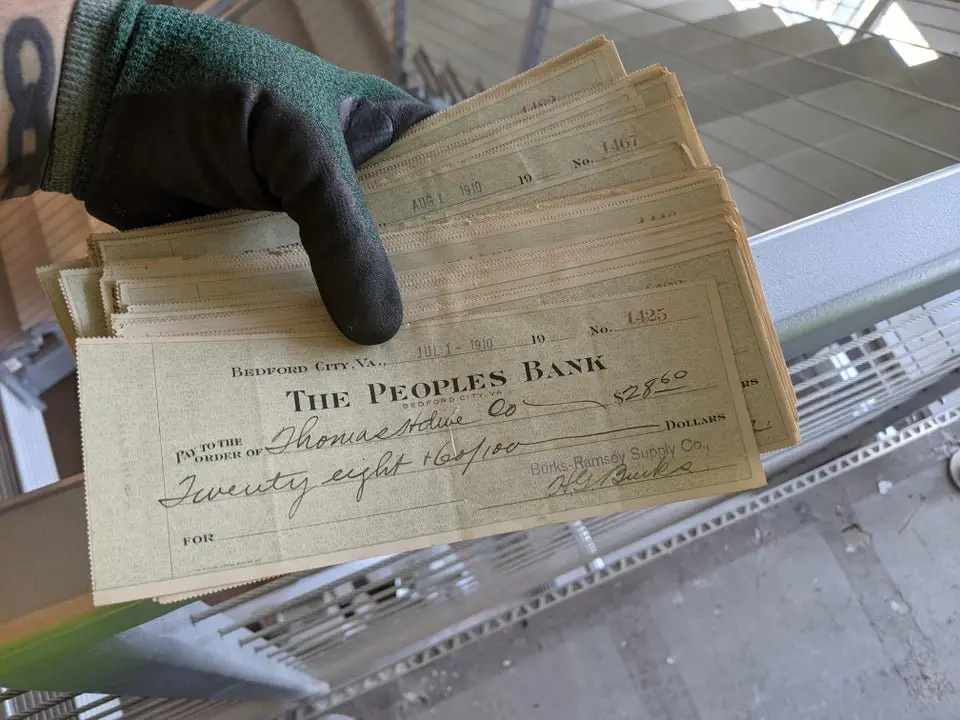 1467
No.
AUG 1 1910
19
1425
No.
19
JUL 1 - 1910
BEDFORD CITY, VA.,
THE PEOPLES BANK
BEDFORD CITY, VA.
$28 60
PAY TO THE
ORDER OF Thomas Hdwe Co
DOLLARS
Twenty eight + 60/100
Burks-Ramsey Supply Co.,
FOR
RS